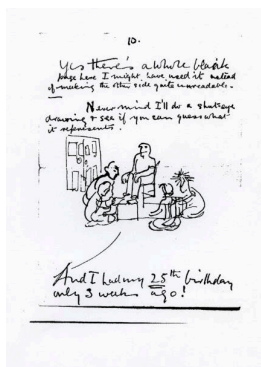 10.
Yes there's a whole blank
page here I might have used it instead
of making the other side quite unreadable.
Never mind I'll do a
drawing & see if you can guess what
it represents.
And I had my 25th birthday
only 3 weeks ago!